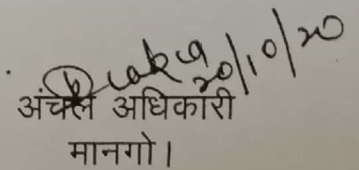 20/10/20
अंचल अधिकारी
मानगो।